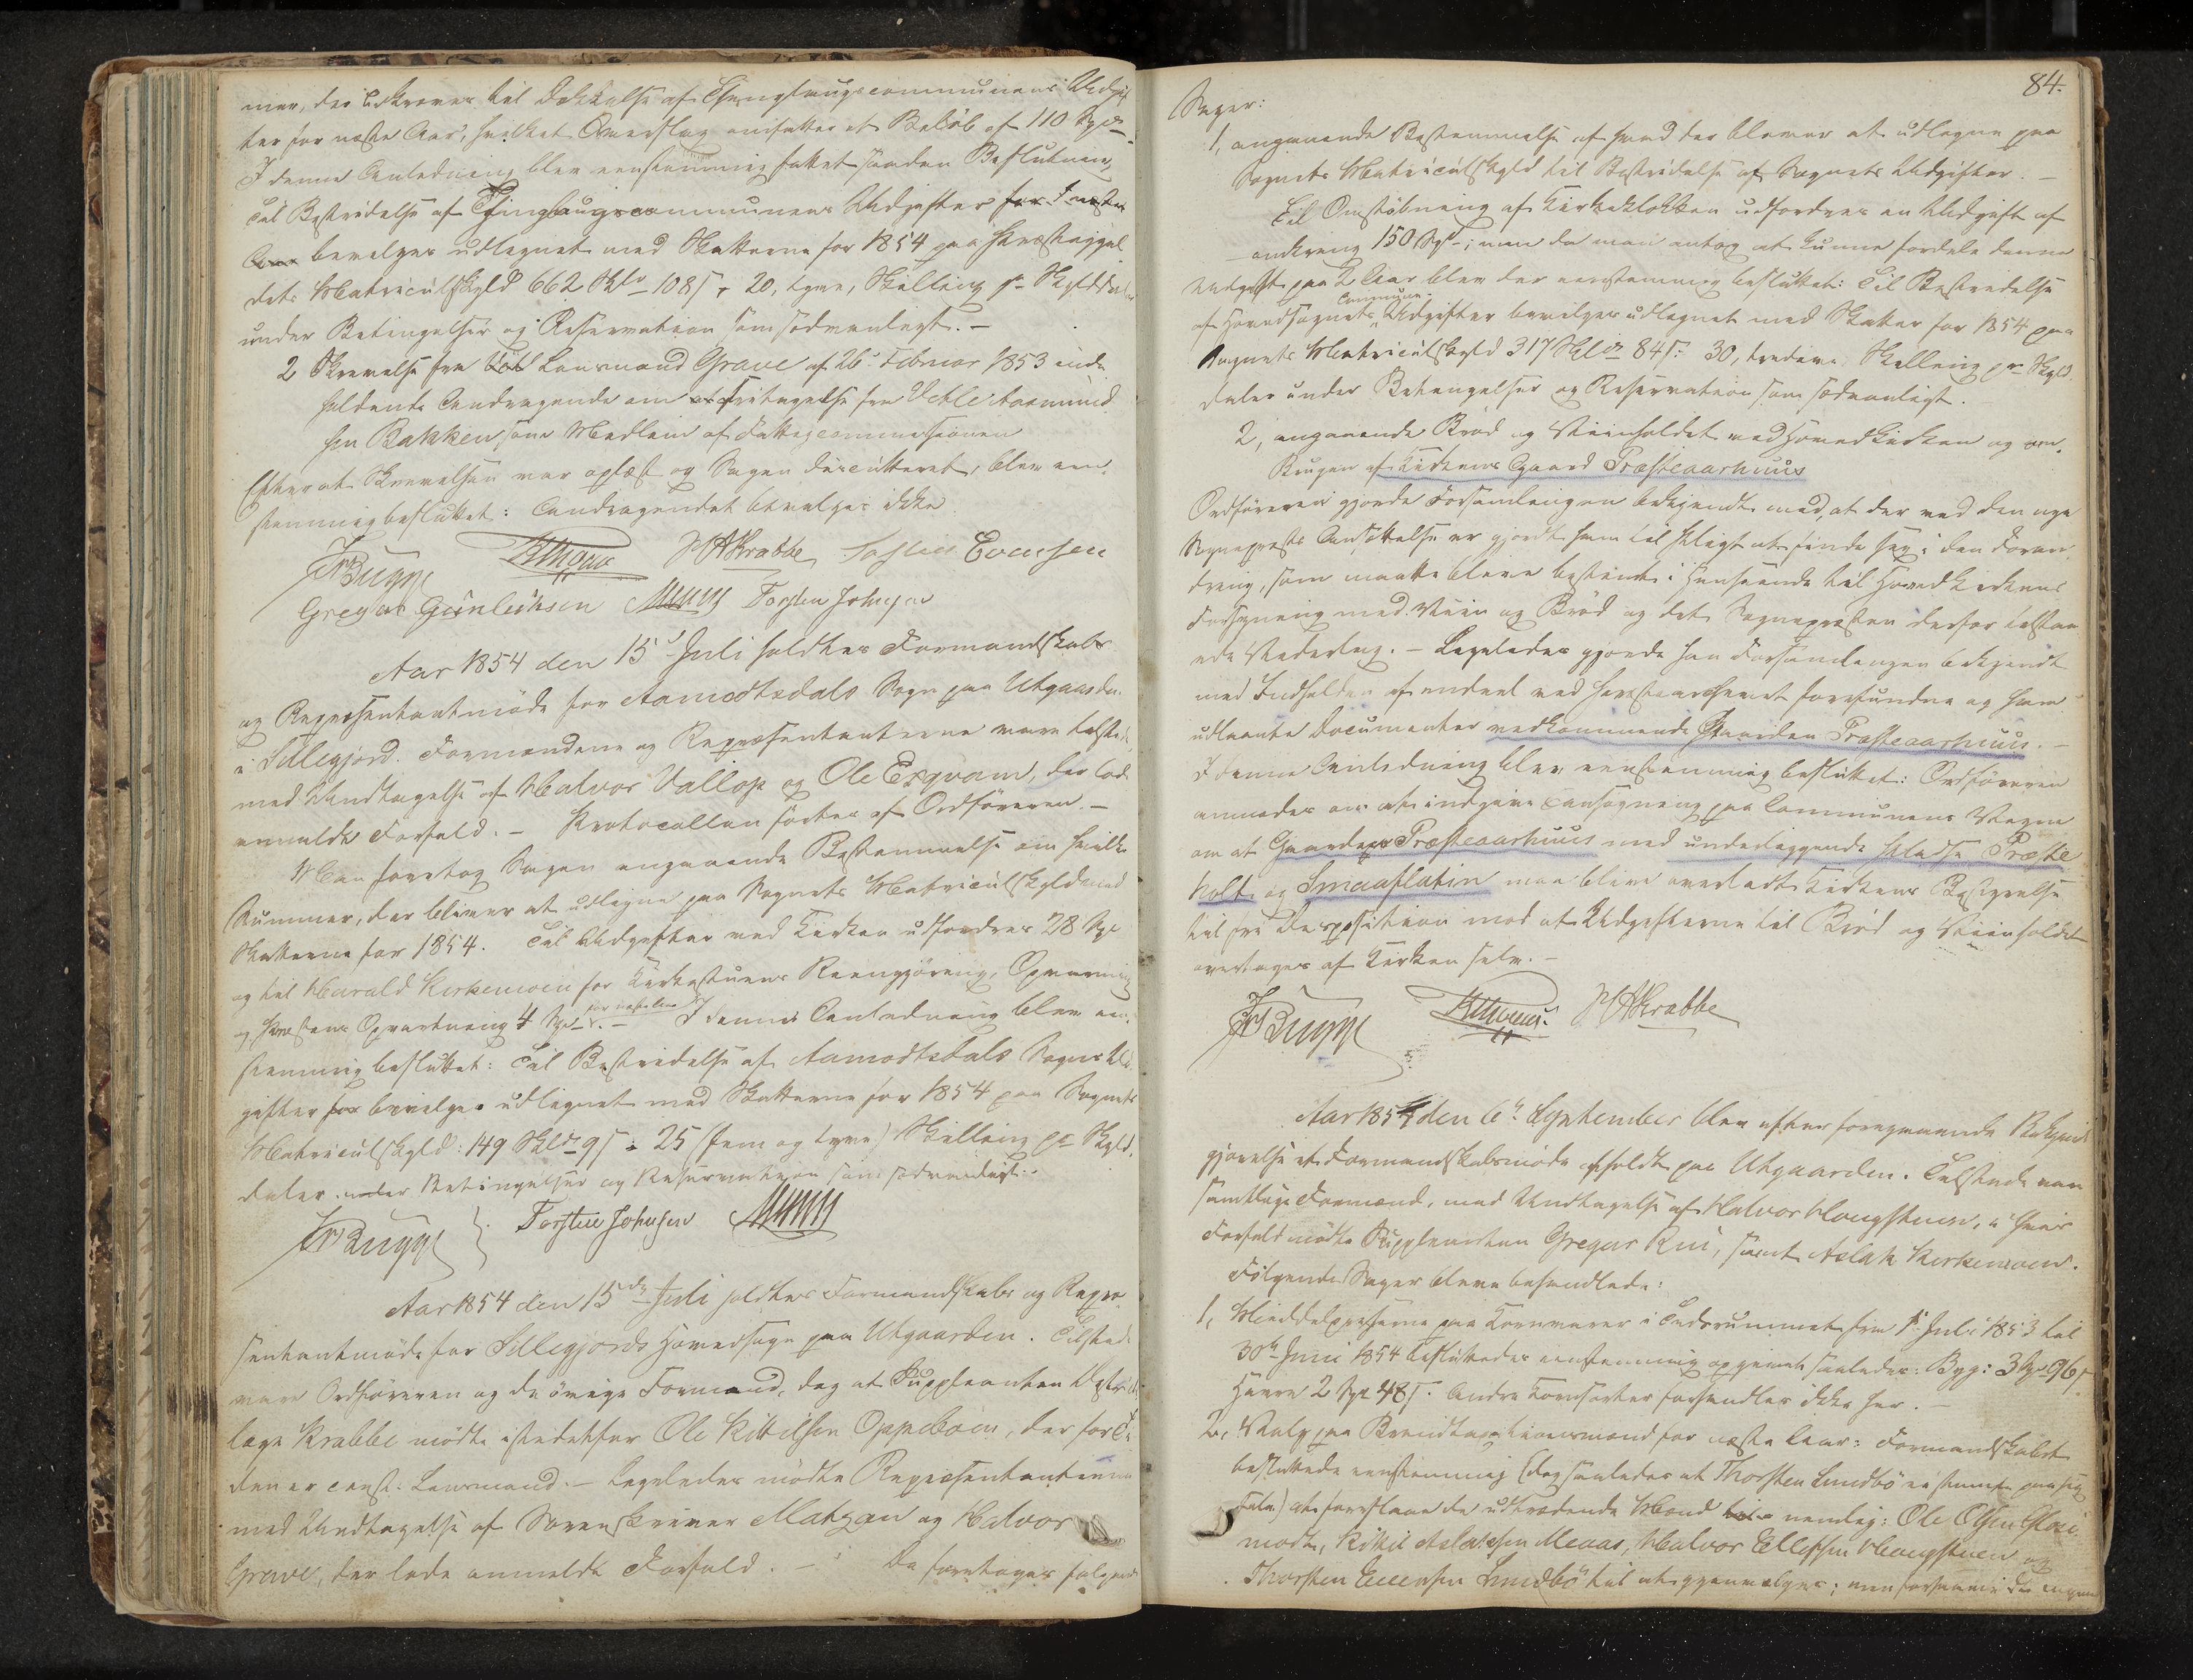 mer, der udkræves til Dækkelse af Thinglaugscommunens Udgif
ter for næste Aar, hvilket Overslag omfatter et Beløb af 110 Spd
I denne Anledning blev eenstemmig fattet saadan Beslutning
Til Bestridelse af Thinglaugscommunens Udgifter for I næste
Aar bevilges udlignet med Skatterne for 1854 paa Præstegjel
dets Matriculskyld 662 Skld 108 s 20, tyve, Skilling pr Skylddaler
under Betingelser og Reservation som sædvanligt. –
2 Skrivelse fra Lensmand Grave af 26. Februar 1853 inde
holdende Andragende om Fritagelse fra Vetle Aasmund
sen Bakken som Medlem af Fattigcommissionen
Efterat Skrivelsen var oplæst og Sagen discutteret, blev een
stemmig besluttet: Andragendet bevilges ikke
JrBugge HAKrabbe Tosten Evensen
Gregar Gunleiksen Munn Torsten Johnsen
Aar 1854 den 15 Juli holdtes Formandskabs
og Repræsentantmøde for Aamodtsdals Sogn paa Utgaarden
i Sillegjord. Formændene og Repræsentanterne vare tilstede
med Undtagelse af Halvor Vallop og Ole Ergvam, der lod
anmelde Forfald. – Protocollen førtes af Ordføreren. –
Man foretog Sagen angaaende Bestemmelse om hvilke
Summer, der bliver at udligne paa Sognets Matriculskyld med
Skatterne for 1854. Til Udgifter ved Kirken udfordres 28 Spd
og til Harald Kirkemoen for Kirkestuens Reengjøring, Opvarming
og Præstens Opvartning 4 Spd. – I denne Anledning blev een
stemmig besluttet: Til Bestridelse af Aamodtsdals Sogns Ud
gifter for bevilges udlignet med Skatterne for 1854 paa Sognets
Matriculskyld: 149 Skld 9 s 25 (fem og tyve) Skilling pr Skyld
daler under Betingelser og Reservation som sædvanligt. –
JrBugge Torsten Johnsen Munn
Aar 1854 den 15de Juli holdtes Formandskabs og Repræ
sentantmøde for Sillegjords Hovedsogn paa Utgaarden. Tilstede
vare Ordføreren og de øvrige Formænd, dog at Suppleanten Districts
læge Krabbe mødte istedetfor Ole Kittilsen Oppebøen, der for Ti
den er const. Lensmand. – Ligeledes mødte Repræsentanterne
med Undtagelse af Sorenskriver Matzau og Halvor
Grave, der lode anmelde Forfald. – Da foretoges følgende
84.
Sager:
1, angaaende Bestemmelse af hvad der bliver at udligne paa
Sognets Matriculskyld til Bestridelse af Sognets Udgifter. –
Til Omstøbning af Kirkeklokken udfordres en Udgift af
omkring 150 Spd; men da man antog at kunne fordele denne
Udgift paa 2 Aar blev der eenstemmig besluttet: Til Bestridelse
af Hovedsognets Commune Udgifter bevilges udlignet med Skatter for 1854 paa
Sognets Matriculskyld 317 Skld 84 s: 30, tredive Skilling pr Skyld
daler under Betingelser og Reservation som sædvanligt.
2, angaaende Brød og Viinholdet ved Hovedkirken og om
Brugen af Kirkens Gaard Præsteaarhuus
Ordføreren gjorde Forsamlingen bekjendt med, at der ved den nye
Sognepræsts Ansættelse er gjort ham til Pligt at finde sig i den Foran
dring, som maatte blive bestemt i Henseende til Hovedkirkens
Forsyning med Viin og Brød og det Sognepræsten derfor tilstaa
ede Vederlag. – Ligeledes gjorde han Forsamlingen bekjendt
med Indholdet af endeel ved Præstearchivet forefundne og ham
udlaante Documenter vedkommende Gaarden Præsteaarhuus. –
I denne Anledning blev eenstemmig besluttet: Ordføreren
anmodes om at indgive Ansøgning paa Communens Vegne
om at Gaarden Præsteaarhuus med underliggende Pladse Præste
holt og Smaaflatin maa blive overladt Kirkens Bestyrelse
til fri Desposition mod at Udgifterne til Brød og Viinholdet
overtages af Kirken selv. –
JrBugge HAKrabbe
Aar 1854 den 6te September blev efter foregaaende Bekjendt
gjørelse et Formandskabsmøde afholdt paa Utgaarden. Tilstede var
samtlige Formænd, med Undtagelse af Halvor Haugstuen, i hvis
Forfald mødte Suppleanten Gregar Rui, samt Aslak Kirkemoen.
Følgende Sager bleve behandlede:
1, Middelpriserne paa Kornvarer i Tidsrummet fra 1 Juli 1853 til
30te Juni 1854 besluttedes eenstemmig opgivet saaledes: Byg: 3 Spd 96 s.
Havre 2 Spd 48 s. Andre Kornsorter forhandles ikke her. –
2, Valg paa Brandtaxationsmænd for næste Aar: Formandskabet
besluttede eenstemmig (dog saaledes at Thorsten Lundbø ei stemte paa sig
selv) at foreslaae de udtrædende Mænd nemlig: Ole Olsen Glosi
modt, Kittil Aslaksen Meaas, Halvor Ellefsen Haugstuen og
Thorsten Evensen Lundbø til at gjenvælges;